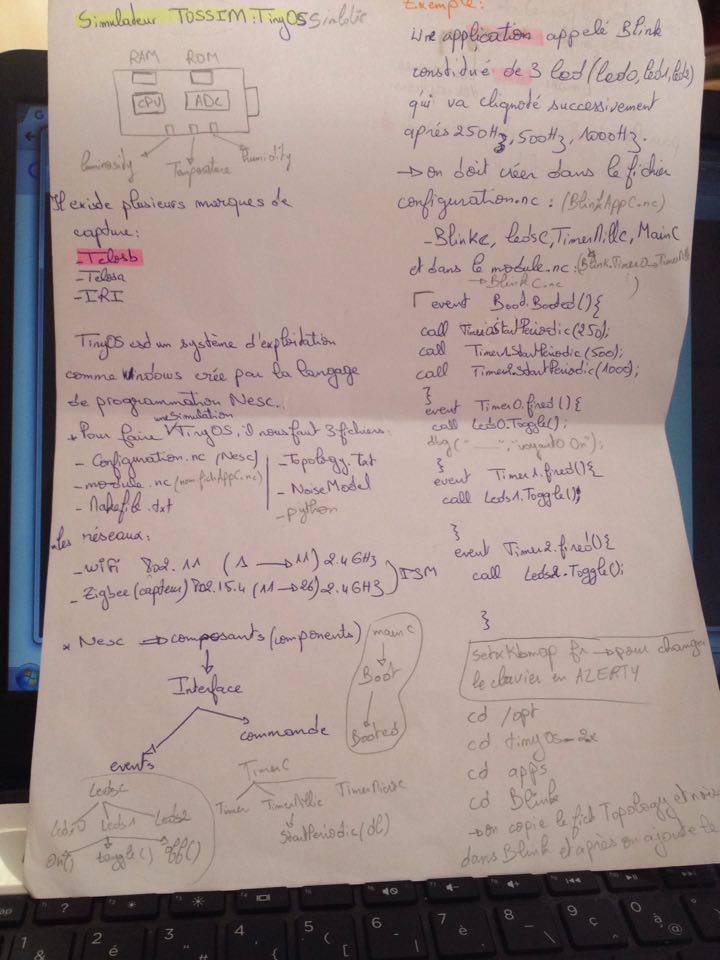 Simulateur TOSSIM : TinyOS
RAM ROM
CPU ADC
luminosity Temperature humidity
Il existe plusieurs marques de
capture:
- Telosb
- Telosa
- IRI
TinyOS est un système d'exploitation
comme Windows crée par la langage
de programmation Nesc.
* Pour faire une simulation TinyOS, il nous faut 3 fichiers.
- Configuration.nc (Nesc)
- module.nc (nom-fichAppC.nc)
- Makefile.txt
- Topology.txt
- NoiseModel
- python
les réseaux:
- wifi 802.11 (1 → 11) 2.4GHz
- Zigbee (capteur) 802.15.4 (11 → 26) 2.4GHz
ISM
* Nesc ⇒ composants (components)
Interface
events commande
mainC
Boot
Booted
LedsC
Leds0 Leds1 Leds2
On() toggle() off()
TimerC
Timer TimerMillic TimerMicroC
startPeriodic(dl)
Exemple:
Une application appelé Blink
constitué de 3 led (led0, led1, led2)
qui va clignoté successivement
aprés 250Hz, 500Hz, 1000Hz.
→ on doit créer dans le fichier
configuration.nc : (BlinkAppC.nc)
- BlinkC, ledsC, TimerMillC, MainC
et dans le module.nc :
→ BlinkC.nc
event Boot.Booted(){
call Timer0StartPeriodic(250);
call Timer1StartPeriodic(500);
call Timer2StartPeriodic(1000);
}
event Timer0.fired(){
call Leds0.Toggle();
dbg("——","voyant0 On");
}
event Timer1.fired(){
call Leds1.Toggle();
}
event Timer2.fired(){
call Leds2.Toggle();
}
setxkbmap fr → pour changer
le clavier en AZERTY
cd /opt
cd tinyos-2x
cd apps
cd Blink
→ on copie le fich Topology et
dans Blink et après on ajoute le